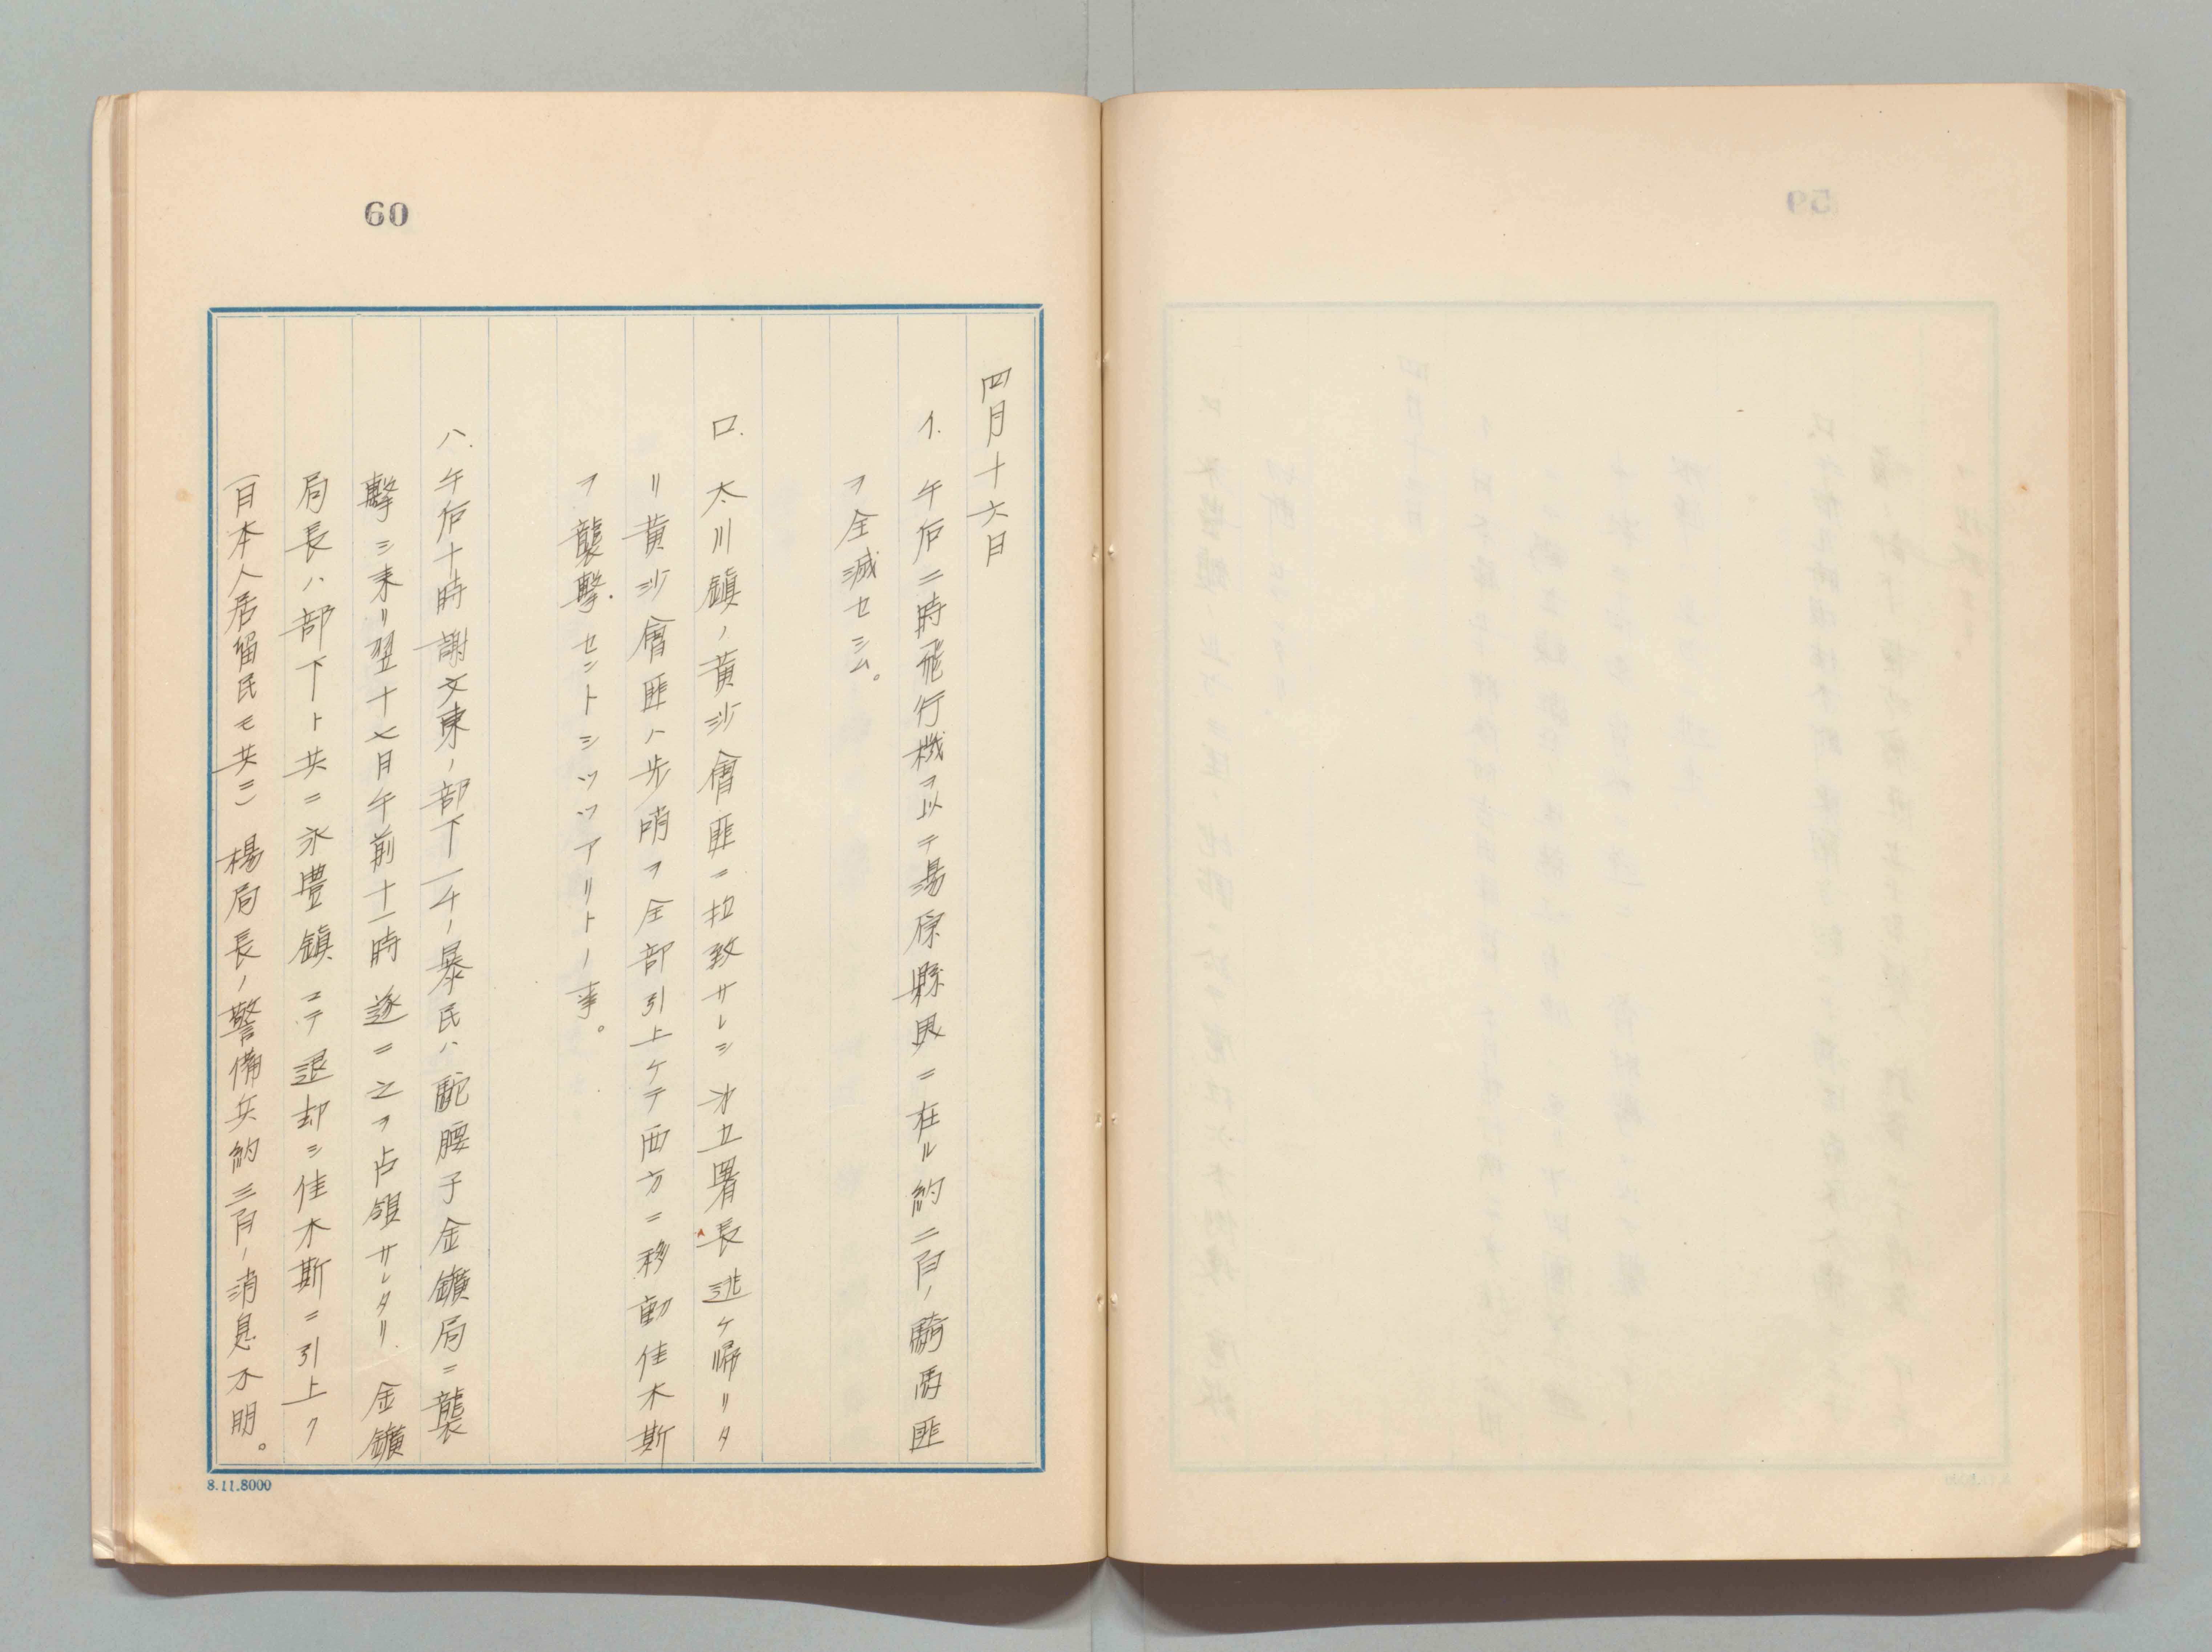 60
四月十六日
イ.午后二時飛行機ヲ以テ湯原縣界ニ在ル約二百ノ騎馬匪
ヲ全滅セシム。
ロ.太川鎮ノ黄沙會匪ニ拉致サレシ 立署長逃ケ帰リタ
リ黄沙會匪ハ歩哨ヲ全部引上ケテ西方ニ移動佳木斯
ヲ襲撃セントシツツアリトノ事。
ハ.午后十時謝文東ノ部下一千ノ暴民ハ駝腰子金鑛局ニ襲
撃シ来リ翌十七日午前十一時遂ニ之ヲ占領サレタリ.金鑛
局長ハ部下ト共ニ永豊鎮ニテ退却シ佳木斯ニ引上ク
(日本人居留民モ共ニ)楊局長ノ警備兵約三百ノ消息不明。
8.11.8000
59